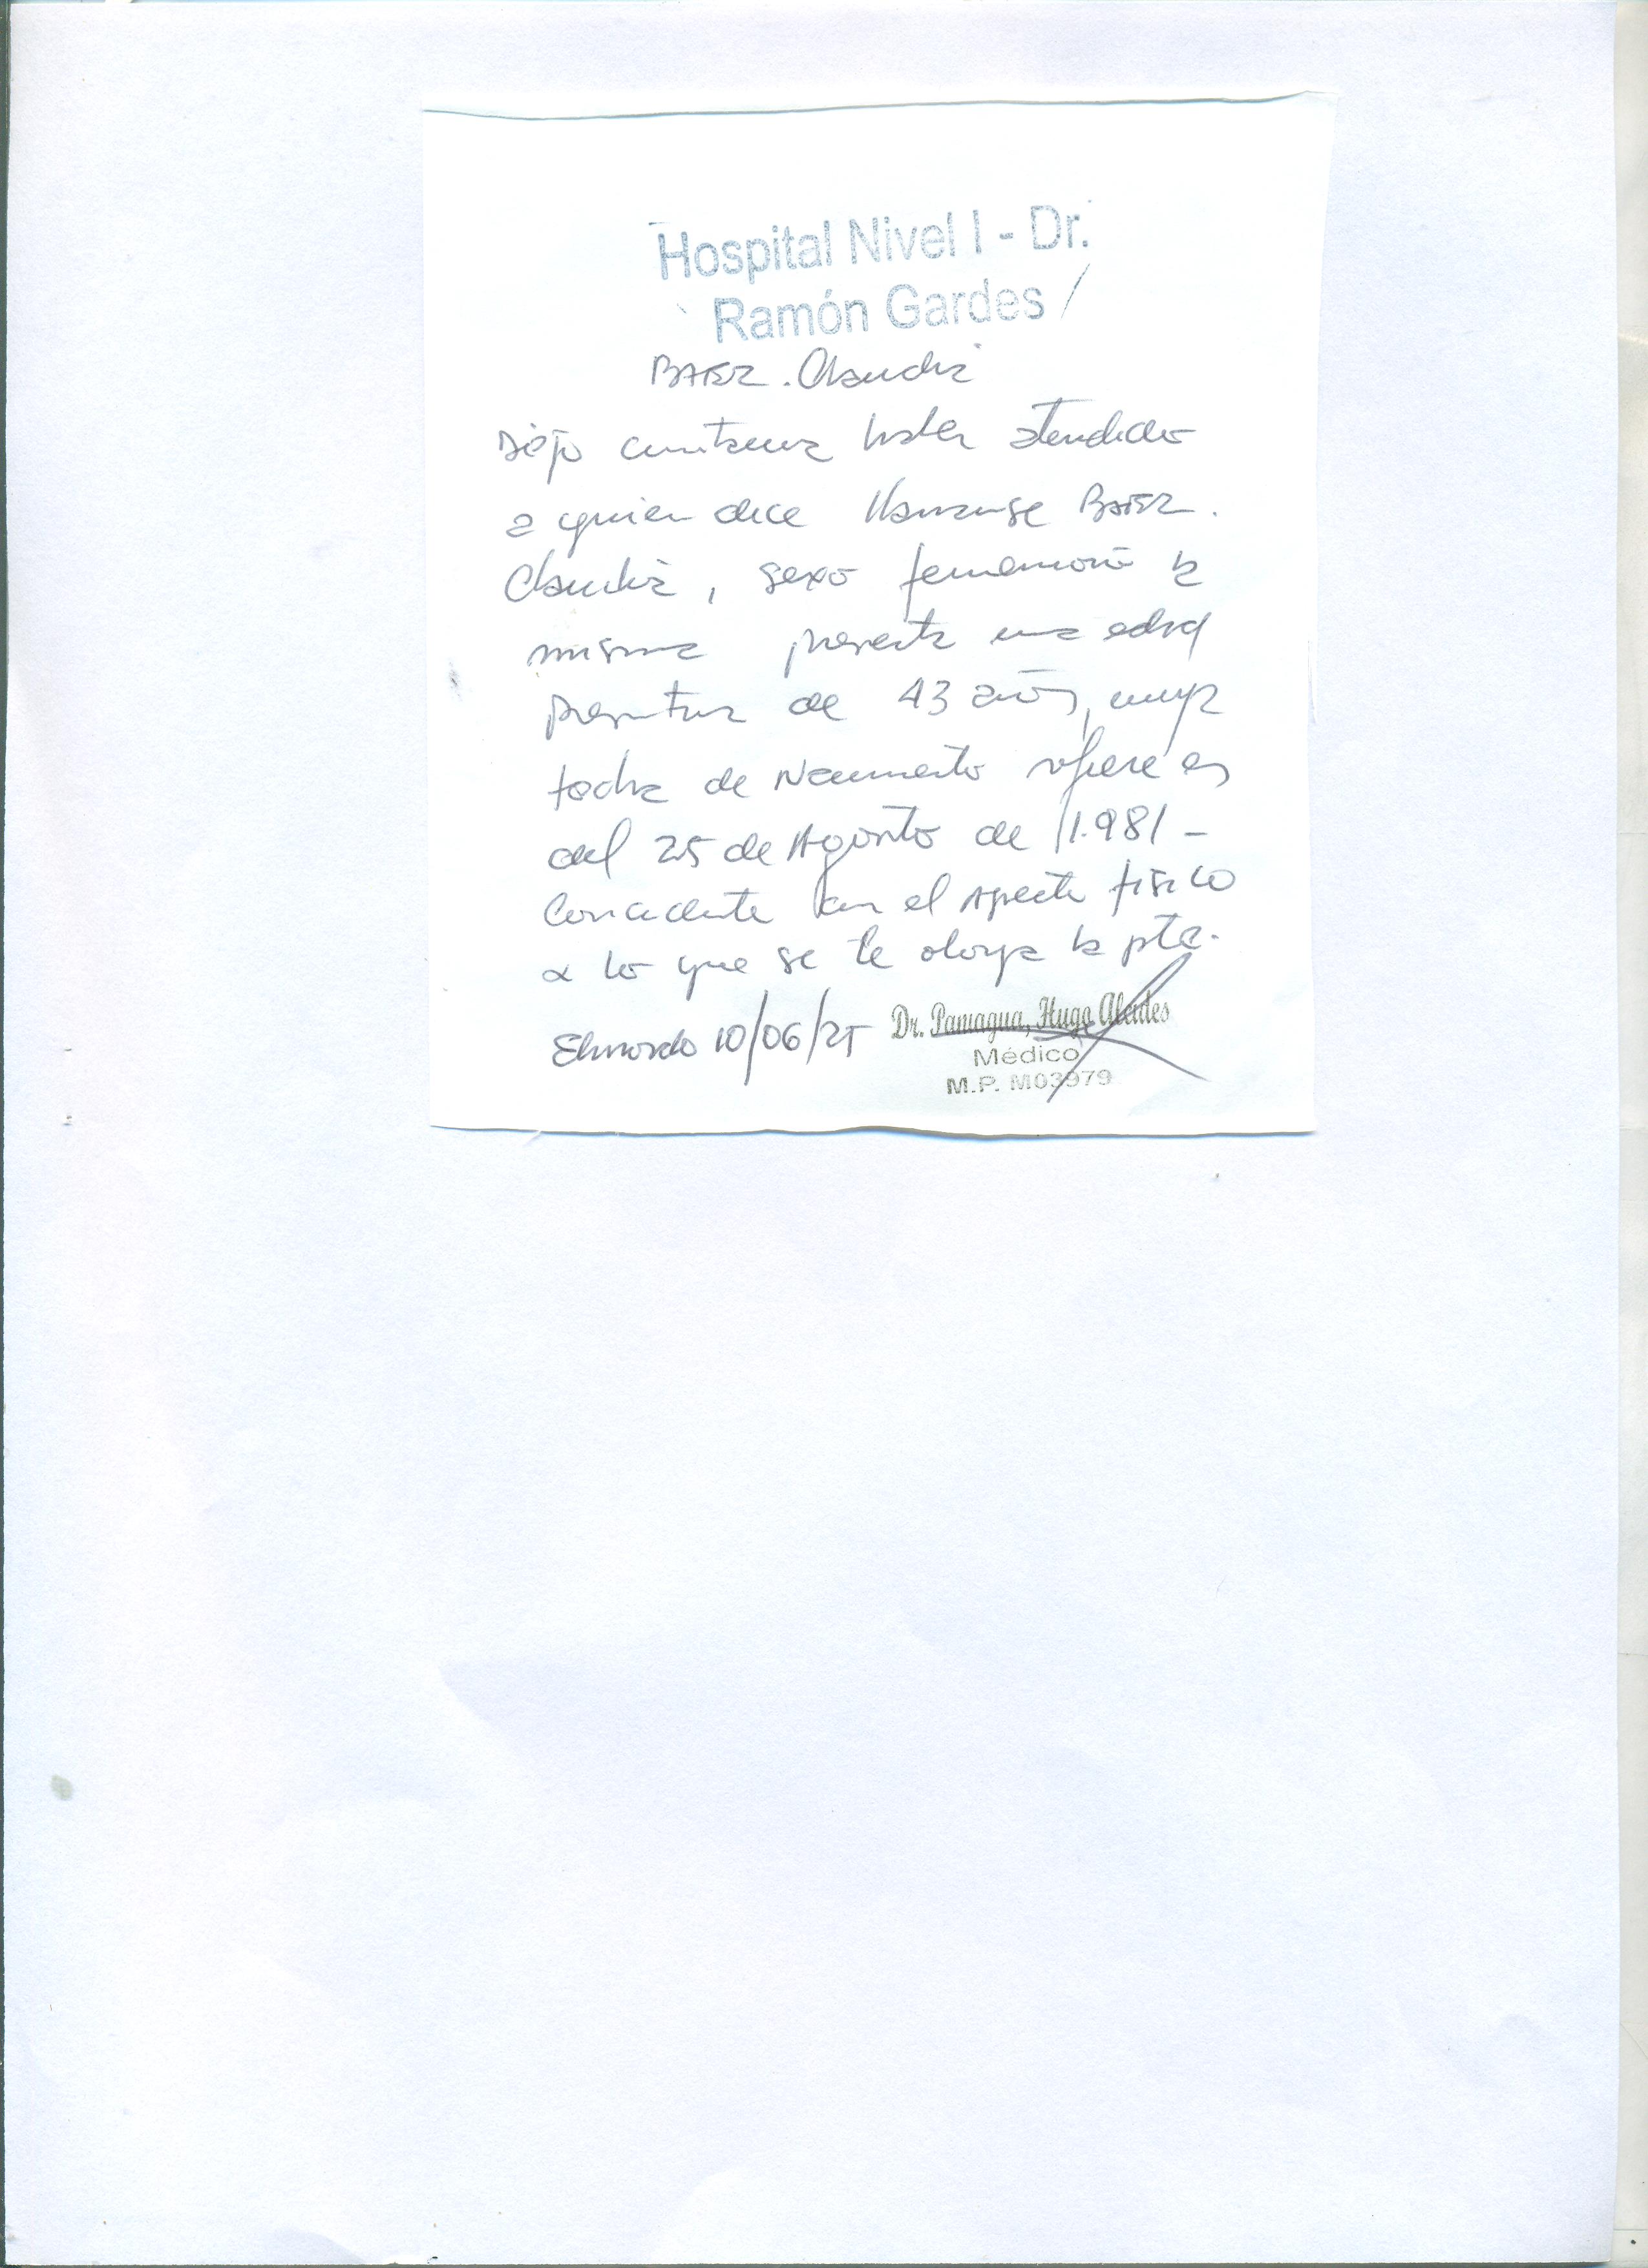 Hospital Nivel I - Dr.
Ramón Gardes /
Claudia
Dejo constancia haber atendido
a quien dice llamarse
Claudia, sexo femenino la
misma presenta una edad
presuntiva de 43 años, cuya
fecha de Nacimiento refiere es
del 25 de Agosto de 1.981 -
Coincidente con el aspecto físico
x lo que se le otorga la pte.
10/06/25 Dr. Paniagua, Hugo Alcides
Médico
M.P. M03979